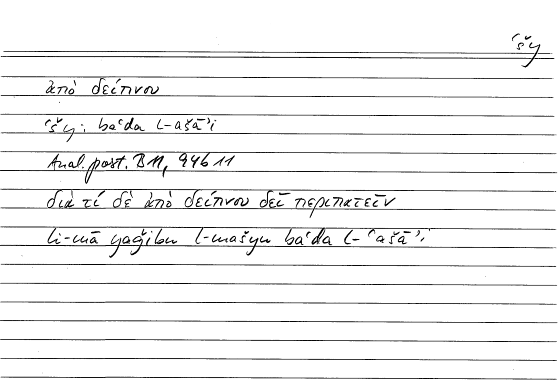 ʿšy
ἀπὸ δείπνου
ʿšy: baʿda l-ašāʾi
Anal. post. B 11, 94b11
διὰ τί δὲ ἀπὸ δείπνου δεῖ περιπατεῖν
li-mā yaǧibu l-mašyu baʿda l-ʿašāʾi